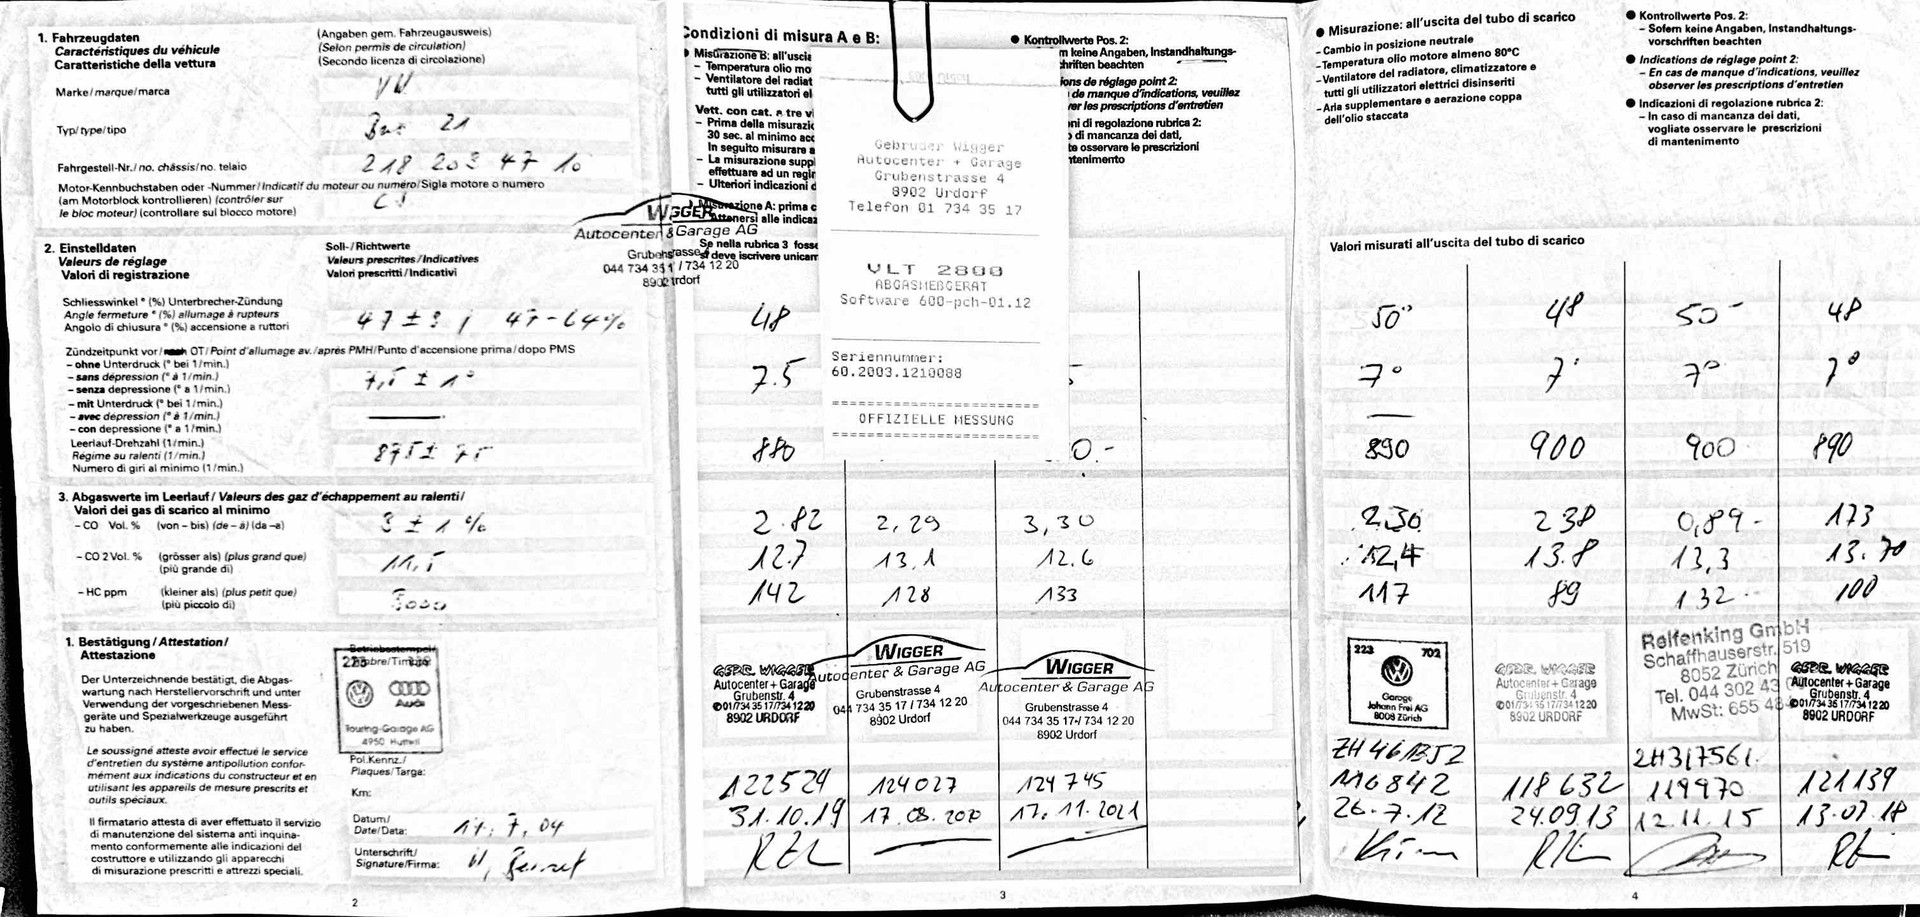 1. Fahrzeugdaten
Caractéristiques du véhicule
Caratteristiche della vettura
(Angaben gem. Fahrzeugausweis)
(Selon permis de circulation)
(Secondo licenza di circolazione)
Marke/marque/marca
VW
Typ/type/tipo
Bus 21
Fahrgestell-Nr./no. châssis/no. telaio
218 203 47 10
Motor-Kennbuchstaben oder -Nummer/Indicatif du moteur ou numéro/Sigla motore o numero
(am Motorblock kontrollieren) (contrôler sur
le bloc moteur) (controllare sul blocco motore)
CJ
2. Einstelldaten
Valeurs de réglage
Valori di registrazione
Soll-/Richtwerte
Valeurs prescrites/Indicatives
Valori prescritti/Indicativi
Schliesswinkel ° (%) Unterbrecher-Zündung
Angle fermeture ° (%) allumage à rupteurs
Angolo di chiusura ° (%) accensione a ruttori
47 ± 3; 47-64%
Zündzeitpunkt vor/nach OT/Point d'allumage av./après PMH/Punto d'accensione prima/dopo PMS
– ohne Unterdruck (° bei 1/min.)
– sans dépression (° à 1/min.)
– senza depressione (° a 1/min.)
7,5 ± 1°
– mit Unterdruck (° bei 1/min.)
– avec dépression (° à 1/min.)
– con depressione (° a 1/min.)
Leerlauf-Drehzahl (1/min.)
Régime au ralenti (1/min.)
Numero di giri al minimo (1/min.)
875 ± 75
3. Abgaswerte im Leerlauf/Valeurs des gaz d'échappement au ralenti/
Valori dei gas di scarico al minimo
– CO Vol. % (von – bis) (de – à) (da – a)
3 ± 1 %
– CO 2 Vol. % (grösser als) (plus grand que)
(più grande di)
11,5
– HC ppm (kleiner als) (plus petit que)
(più piccolo di)
3000
1. Bestätigung/Attestation/
Attestazione
Der Unterzeichnende bestätigt, die Abgas-
wartung nach Herstellervorschrift und unter
Verwendung der vorgeschriebenen Mess-
geräte und Spezialwerkzeuge ausgeführt
zu haben.
Le soussigné atteste avoir effectué le service
d'entretien du système antipollution confor-
mément aux indications du constructeur et en
utilisant les appareils de mesure prescrits et
outils spéciaux.
Il firmatario attesta di aver effettuato il servizio
di manutenzione del sistema anti inquina-
mento conformemente alle indicazioni del
costruttore e utilizzando gli apparecchi
di misurazione prescritti e attrezzi speciali.
Betriebsstempel
Audi
Touring-Garage AG
4950 Huttwil
Pol.Kennz./
Plaques/Targa:
Km:
Datum/
Date/Data:
Unterschrift/
Signature/Firma:
2
WIGGER
Autocenter & Garage AG
Grubenstrasse
044 734 35 1 / 734 12 20
8902 Urdorf
Condizioni di misura A e B:
Misurazione B: all'uscita
– Temperatura olio mo
– Ventilatore del radiat
tutti gli utilizzatori el
Vett. con cat. a tre v
– Prima della misurazio
30 sec. al minimo acc
In seguito misurare a
– La misurazione suppl
effettuare ad un regir
– Ulteriori indicazioni d
Misurazione A: prima c
Attenersi alle indicaz
Se nella rubrica 3 fosse
si deve iscrivere unicam
● Kontrollwerte Pos. 2:
m keine Angaben, Instandhaltungs-
chriften beachten
ions de réglage point 2:
de manque d'indications, veuillez
ver les prescriptions d'entretien
ni di regolazione rubrica 2:
di mancanza dei dati,
te osservare le prescrizioni
ntenimento
Gebrüder Wigger
Autocenter + Garage
Grubenstrasse 4
8902 Urdorf
Telefon 01 734 35 17
VLT 2800
ABGASMEßGERÄT
Software 600-pch-01.12
Seriennummer:
60.2003.1210088
OFFIZIELLE MESSUNG
48
7.5
880 0.-
2.82 2,29 3,30
12.7 13,1 12.6
142 128 133
GEBR. WIGGER
Autocenter + Garage
Grubenstr. 4
✆01/734 35 17/734 12 20
8902 URDORF
WIGGER
Autocenter & Garage AG
Grubenstrasse 4
044 734 35 17 / 734 12 20
8902 Urdorf
WIGGER
Autocenter & Garage AG
Grubenstrasse 4
044 734 35 17 / 734 12 20
8902 Urdorf
122524 124027 124745
31.10.19 17.08.2020 17.11.2021
3
● Misurazione: all'uscita del tubo di scarico
– Cambio in posizione neutrale
– Temperatura olio motore almeno 80°C
– Ventilatore del radiatore, climatizzatore e
tutti gli utilizzatori elettrici disinseriti
– Aria supplementare e aerazione coppa
dell'olio staccata
● Kontrollwerte Pos. 2:
– Sofern keine Angaben, Instandhaltungs-
vorschriften beachten
● Indications de réglage point 2:
– En cas de manque d'indications, veuillez
observer les prescriptions d'entretien
● Indicazioni di regolazione rubrica 2:
– In caso di mancanza dei dati,
vogliate osservare le prescrizioni
di mantenimento
Valori misurati all'uscita del tubo di scarico
50° 48 50- 48
7° 7° 7° 7°
890 900 900 890
2,30 238 0,89- 173
12,4 13.8 13,3 13.70
117 89 132- 100
223 702
Garage
Johann Frei AG
8008 Zürich
GEBR. WIGGER
Autocenter + Garage
Grubenstr. 4
✆01/734 35 17/734 12 20
8902 URDORF
Reifenking GmbH
Schaffhauserstr. 519
8052 Zürich
Tel. 044 302 43
MwSt: 655 48
GEBR. WIGGER
Autocenter + Garage
Grubenstr. 4
✆01/734 35 17/734 12 20
8902 URDORF
ZH 461352 ZH317561.
116842 118 632 119970 121139
26.7.12 24.09.13 12.11.15 13.07.18
4